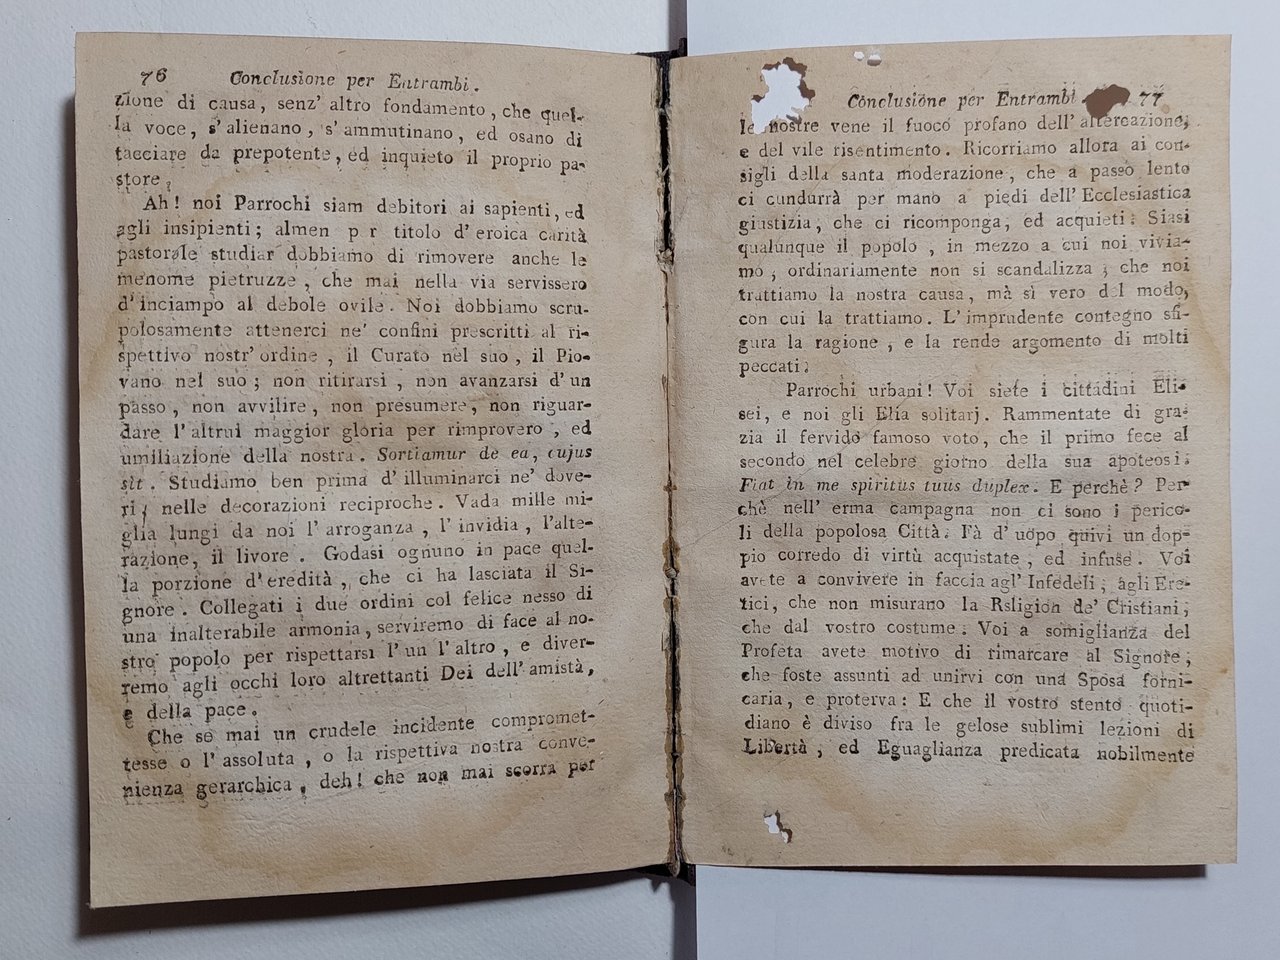 76 Conclusione per Entrambi.
zione di causa, senz' altro fondamento, che quel-
la voce, s'alienano, s'ammutinano, ed osano di
tacciare da prepotente, ed inquieto il proprio pa-
store.
Ah! noi Parrochi siam debitori ai sapienti, ed
agli insipienti; almen p r titolo d'eroica carità
pastorale studiar dobbiamo di rimovere anche le
menome pietruzze, che mai nella via servissero
d'inciampo al debole ovile. Noi dobbiamo scru-
polosamente attenerci ne' confini prescritti al ri-
spettivo nostr'ordine, il Curato nel suo, il Pio-
vano nel suo; non ritirarsi, non avanzarsi d'un
passo, non avvilire, non presumere, non riguar-
dare l'altrui maggior gloria per rimprovero, ed
umiliazione della nostra. Sortiamur de ea, cujus
sit. Studiamo ben prima d'illuminarci ne' dove-
ri; nelle decorazioni reciproche. Vada mille mi-
glia lungi da noi l'arroganza, l'invidia, l'alte-
razione, il livore. Godasi ognuno in pace quel-
la porzione d'eredità, che ci ha lasciata il Si-
gnore. Collegati i due ordini col felice nesso di
una inalterabile armonia, serviremo di face al no-
stro popolo per rispettarsi l'un l'altro, e diver-
remo agli occhi loro altrettanti Dei dell'amistà,
e della pace.
Che se mai un crudele incidente compromet-
tesse o l'assoluta, o la rispettiva nostra conve-
nienza gerarchica, deh! che non mai scorra per
Conclusione per Entrambi 77
le nostre vene il fuoco profano dell'altercazione,
e del vile risentimento. Ricorriamo allora ai con-
sigli della santa moderazione, che a passo lento
ci cundurrà per mano a piedi dell'Ecclesiastica
giustizia, che ci ricomponga, ed acquieti. Siasi
qualunque il popolo, in mezzo a cui noi vivia-
mo, ordinariamente non si scandalizza, che noi
trattiamo la nostra causa, mà sì vero del modo,
con cui la trattiamo. L'imprudente contegno sfi-
gura la ragione, e la rende argomento di molti
peccati.
Parrochi urbani! Voi siete i cittadini Eli-
sei, e noi gli Elia solitarj. Rammentate di gra-
zia il fervido famoso voto, che il primo fece al
secondo nel celebre giorno della sua apoteosi.
Fiat in me spiritus tuus duplex. E perchè? Per-
chè nell' erma campagna non ci sono i perico-
li della popolosa Città. Fà d'uopo quivi un dop-
pio corredo di virtù acquistate, ed infuse. Voi
avete a convivere in faccia agl'Infedeli, agli Ere-
tici, che non misurano la Rsligion de' Cristiani,
che dal vostro costume. Voi a somiglianza del
Profeta avete motivo di rimarcare al Signore,
che foste assunti ad unirvi con una Sposa forni-
caria, e proterva: E che il vostro stento quoti-
diano è diviso fra le gelose sublimi lezioni di
Libertà, ed Eguaglianza predicata nobilmente